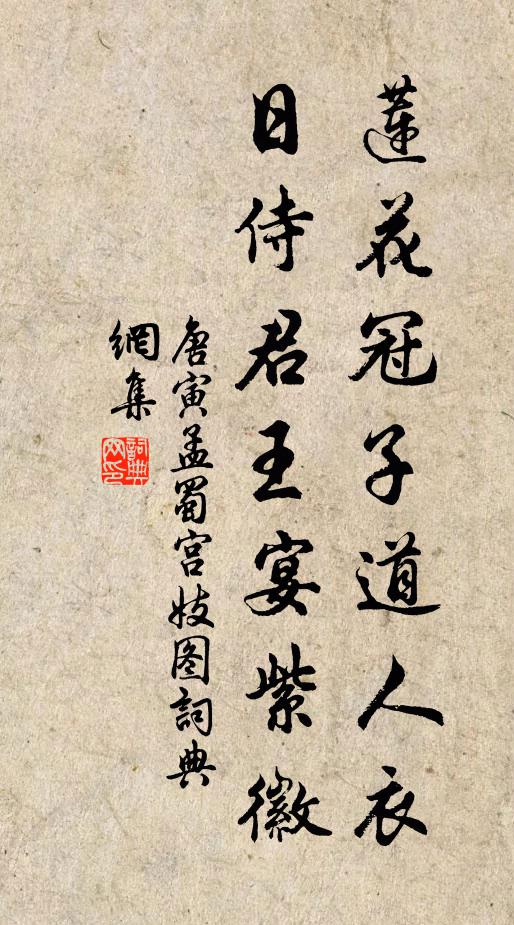 蓮花冠子道人衣
日侍君王宴紫徽
唐寅孟蜀宫妓图詞典
網集
詞典网印